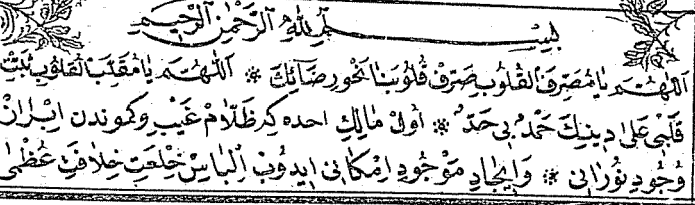 بِسْمِ اللهِ الرَّحْمٰنِ الرَّحِيمِ
اَللّٰهُمَّ يَا مُصَرِّفَ الْقُلُوبِ صَرِّفْ قُلُوبَنَا نَحْوَ رِضَائِكَ * اَللّٰهُمَّ يَا مُقَلِّبَ الْقُلُوبِ ثَبِّتْ
قَلْبِي عَلَى دِينِكَ حَمْدِ بِى حَدّ * اُولْ مَالِكِ احده كه ظَلَامْ غَيْب وكموندن ابراز
وُجُودِ نُورَانِى * وَايجَادِ مَوْجُودِ اِمْكَانِى ايدُوبْ اِلْبَاسِ خِلْعَتِ خِلَافَتِ عُظْمٰى